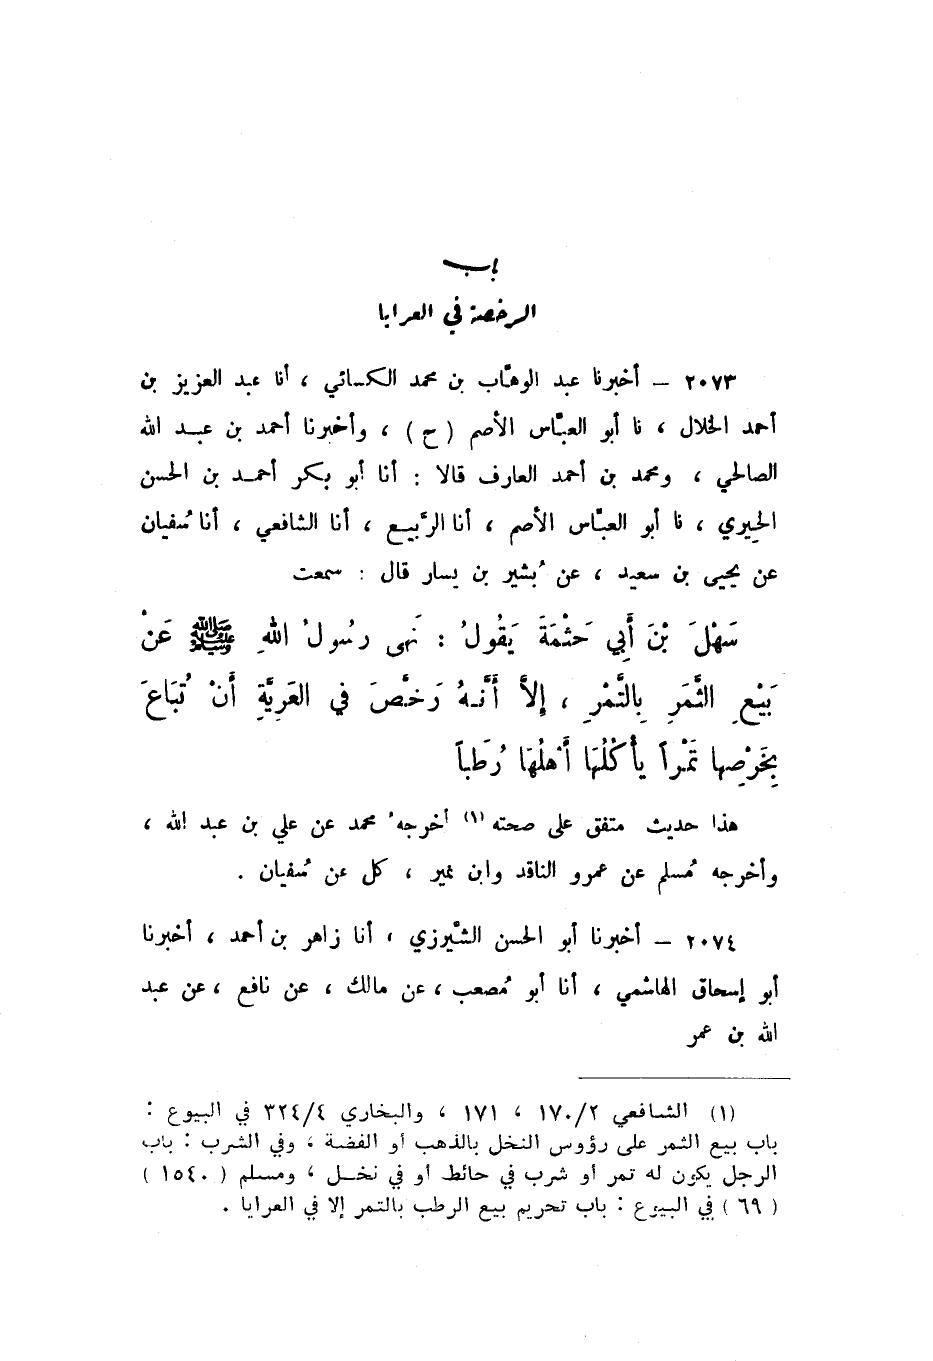 باب
الرخصة في العرايا
٢٠٧٣ – أخبرنا عبد الوهّاب بن محمد الكسائي ، أنا عبد العزيز بن
أحمد الخلال ، نا أبو العبّاس الأصم ( ح ) ، وأخبرنا أحمد بن عبد الله
الصالحي ، ومحمد بن أحمد العارف قالا : أنا أبو بكر أحمد بن الحسن
الحيري ، نا أبو العبّاس الأصم ، أنا الرَّبيع ، أنا الشافعي ، أنا سُفيان
عن يحيى بن سعيد ، عن بُشير بن يسار قال : سمعت
سَهْلَ بْنَ أَبِي حَثْمَةَ يَقُولُ : نَهى رسُولُ اللهِ ﷺ عَنْ
بَيْعِ الثَّمَرِ بِالتَّمْرِ ، إِلاَّ أَنَّهُ رَخَّصَ في العَرِيَّةِ أَنْ تُبَاعَ
بِخَرْصِها تَمْراً يأْكُلُهَا أَهْلُهَا رُطَباً
هذا حديث متفق على صحته (١) أخرجه محمد عن علي بن عبد الله ،
وأخرجه مُسلم عن عمرو الناقد وابن نمير ، كل عن سُفيان .
٢٠٧٤ – أخبرنا أبو الحسن الشِّيرزي ، أنا زاهر بن أحمد ، أخبرنا
أبو إسحاق الهاشمي ، أنا أبو مُصعب ، عن مالك ، عن نافع ، عن عبد
الله بن عمر
(١) الشافعي ١٧٠/٢ ، ١٧١ ، والبخاري ٣٢٤/٤ في البيوع :
باب بيع الثمر على رؤوس النخل بالذهب أو الفضة ، وفي الشرب : باب
الرجل يكون له تمر أو شرب في حائط أو في نخل ، ومسلم ( ١٥٤٠ )
( ٦٩ ) في البيوع : باب تحريم بيع الرطب بالتمر إلا في العرايا .